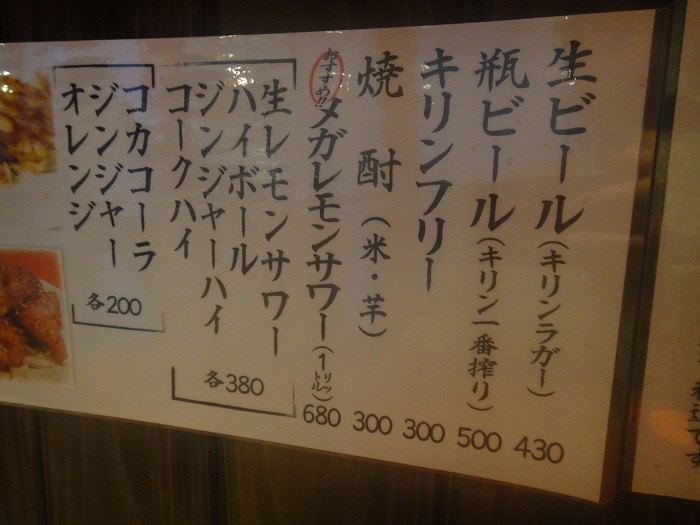 生ビール(キリンラガー) 430
瓶ビール(キリン一番搾り) 500
キリンフリー 300
焼酎(米・芋) 300
おすすめ!!メガレモンサワー(1リットル) 680
生レモンサワー
ハイボール
ジンジャーハイ
コークハイ
各380
コカコーラ
ジンジャー
オレンジ
各200
です